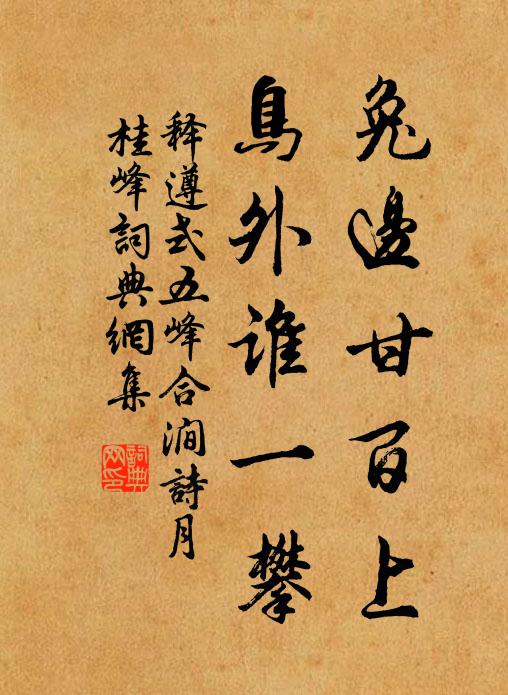 兔邊甘百上
鳥外誰一攀
释遵式五峰合澗詩月
桂峰詞典網集
詞典
网印